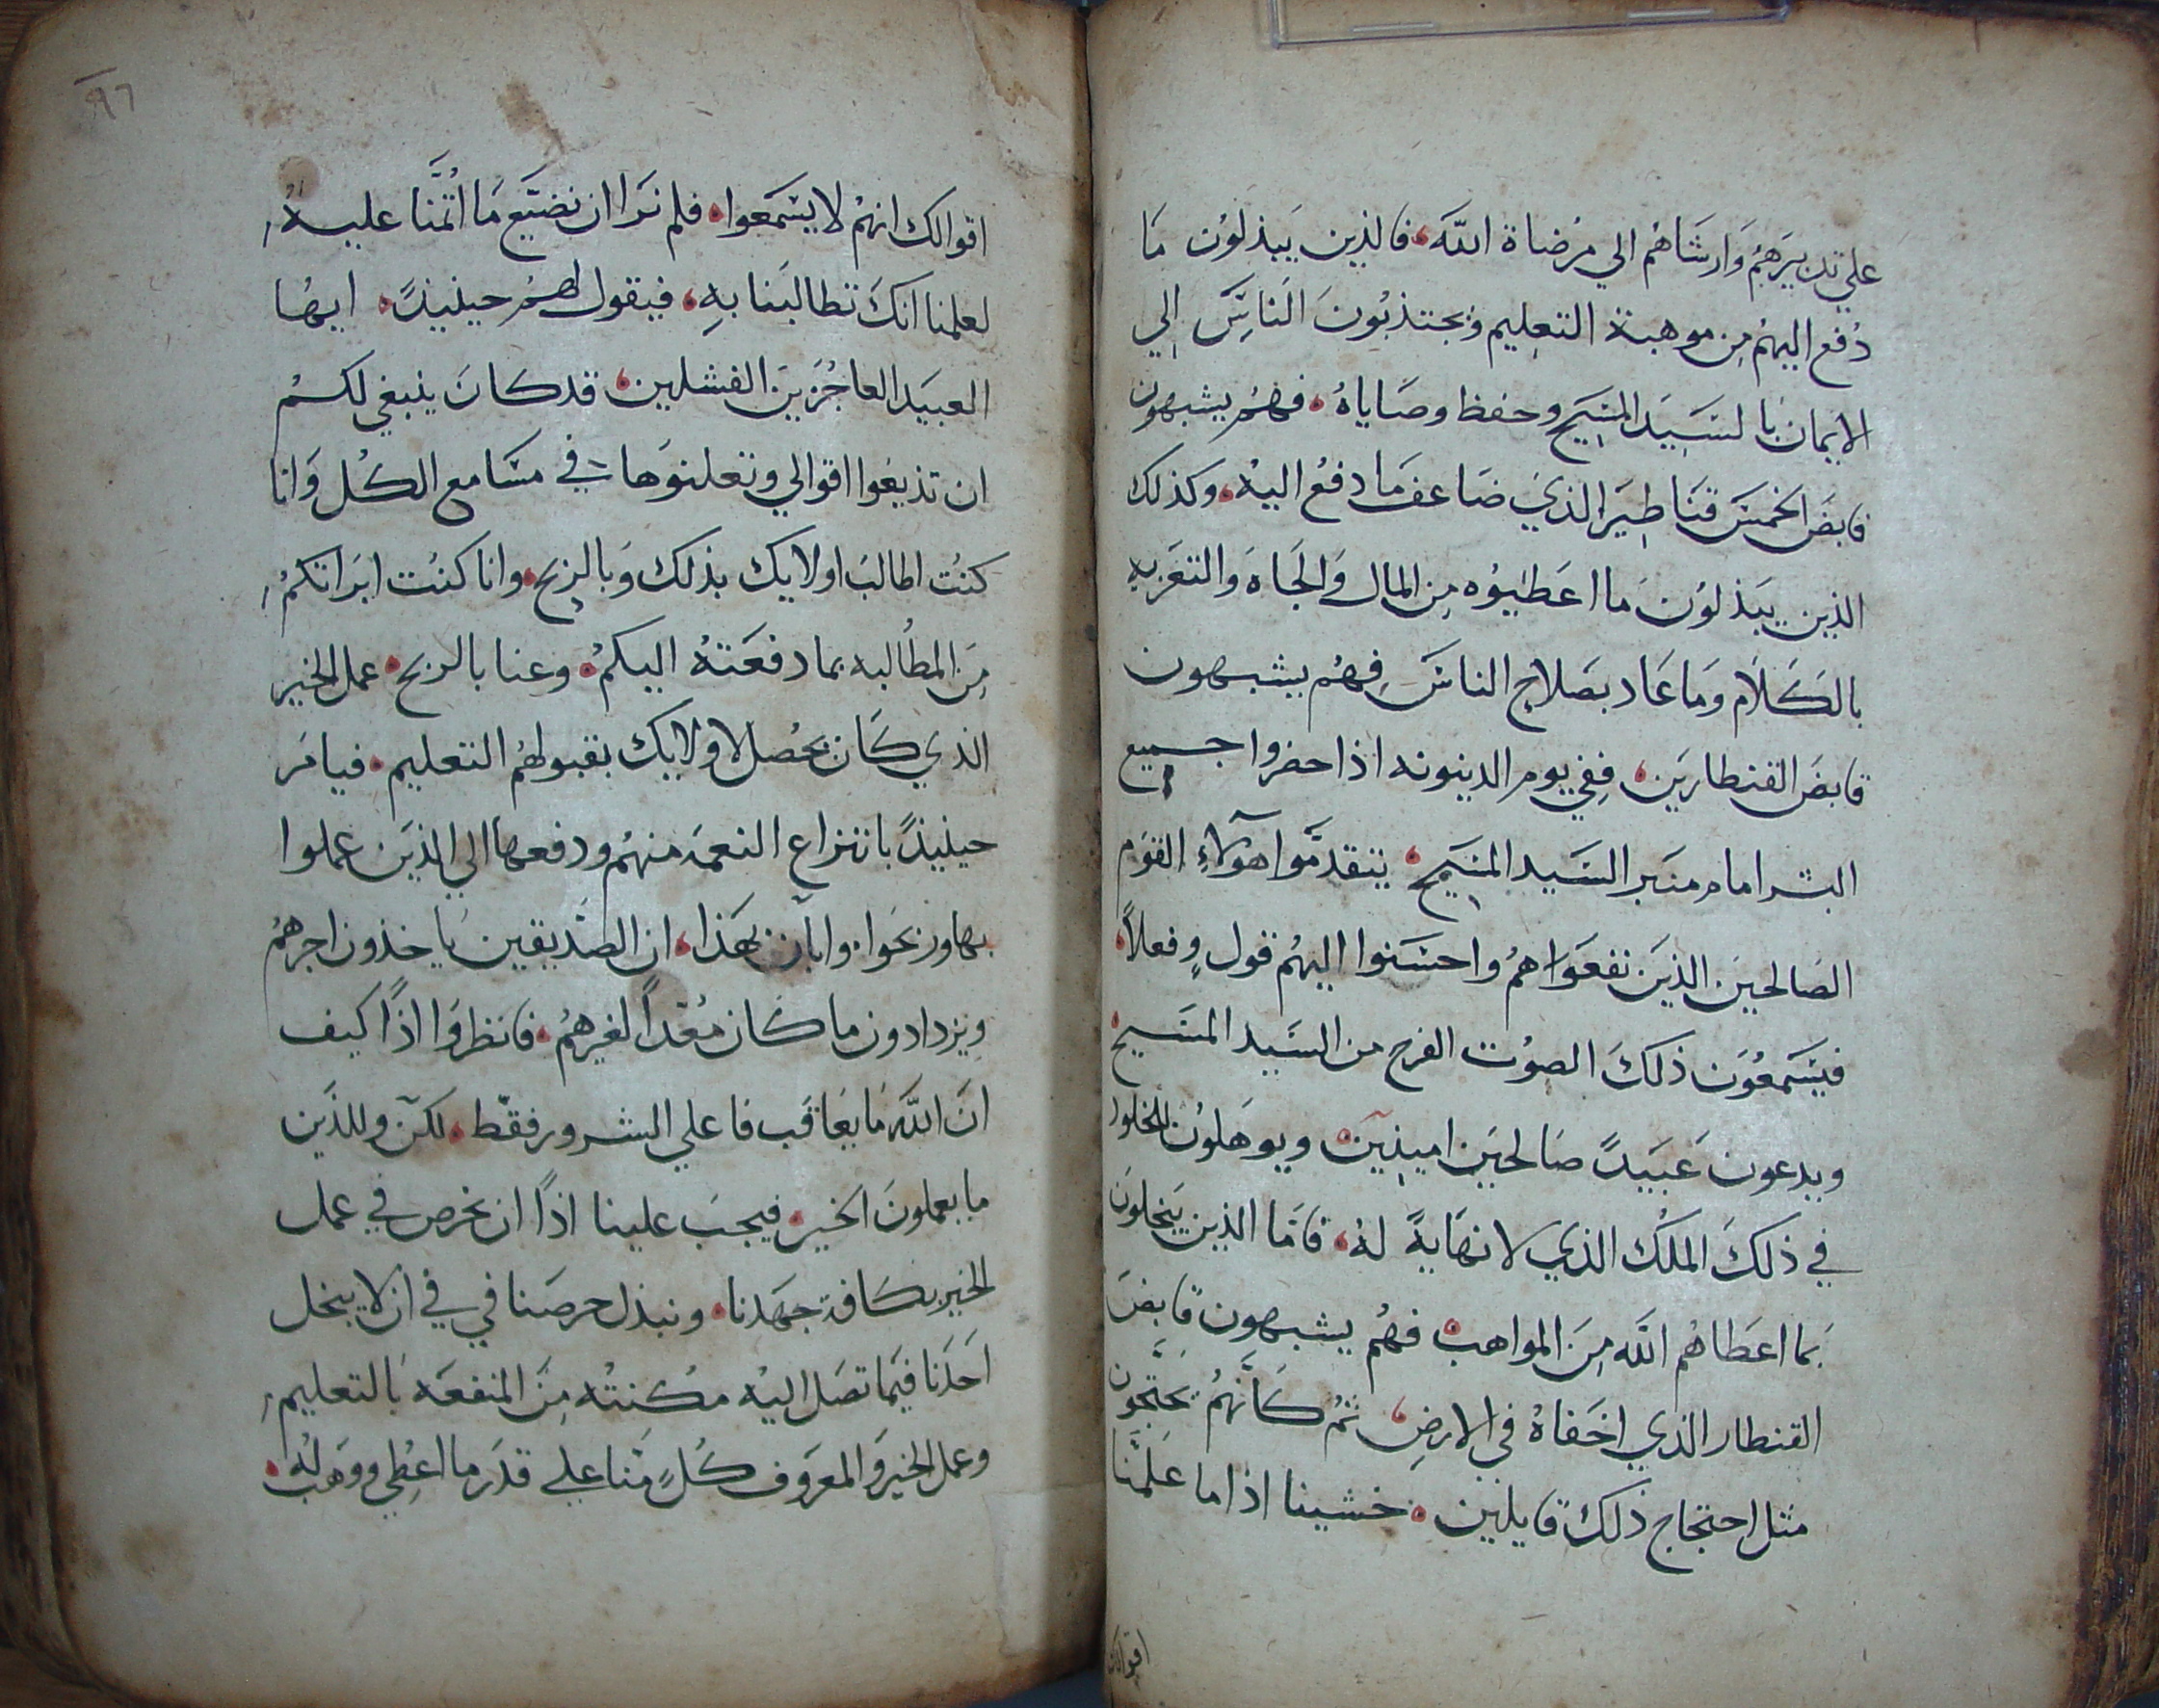 علي تدبيرهم وارشاهم الي مرضاة الله، فالذين يبذلون ما
دُفع اليهم من موهبة التعليم ويجتذبون الناس الي
الايمان بالسيد المسيح وحفظ وصاياه، فهم يشبهون
قابض الخمس قناطير الذي ضاعف ما دفع اليه، وكذلك
الذين يبذلون ما اعطيوه من المال والجاه والتعزيه
بالكلام وما عاد بصلاح الناس فهم يشبهون
قابض القنطارين، ففي يوم الدينونه اذا حضروا جميع
البشر امام منبر السيد المسيح، يتقدموا هولاء القوم
الصالحين الذين نفعواهم واحسنوا اليهم قول وفعلاً،
فيسمعون ذلك الصوت الفرح من السيد المسيح
ويدعون عبيدً صالحين امينين ويوهلون للخلود
في ذلك الملك الذي لا نهاية له، فاما الذين يبخلون
بما اعطاهم الله من المواهب فهم يشبهون قابض
القنطار الذي اخفاه في الارض، ثم كانهم يحتجون
مثل احتجاج ذلك قايلين، خشينا اذا ما علمنا
اقوالك
٩٦
اقوالك انهم لا يسمعوا، فلم نرا ان نضيع ما اتمنا عليه
لعلمنا انك تطالبنا به، فيقول لهم حينيذً، ايها
العبيد العاجزين الفشلين، قد كان ينبغي لكم
ان تذيعوا اقوالي وتعلنوها في مسامع الكل وانا
كنت اطالب اولايك بذلك وبالربح، وانا كنت ابراتكم
من المطالبه بما دفعته اليكم، وعنا بالربح، عمل الخير
الذي كان يحصل لاولايك بقبولهم التعليم، فيامر
حينيذً بانتزاع النعمه منهم ودفعها الي الذين عملوا
بها وربحوا، وابان بهذا، ان الصديقين ياخذون اجرهم
ويزدادون ما كان معداً لغيرهم، فانظروا اذاً كيف
ان الله ما يعاقب فاعلي الشرور فقط، لكن وللذين
ما يعملون الخير، فيجب علينا اذاً ان نحرص في عمل
الخير بكافة جهدنا، ونبذل حرصنا في في ان لا يبخل
احدنا فيما تصل اليه مكنته من المنفعه بالتعليم
وعمل الخير والمعروف كل منا علي قدر ما اعطي ووهب له،